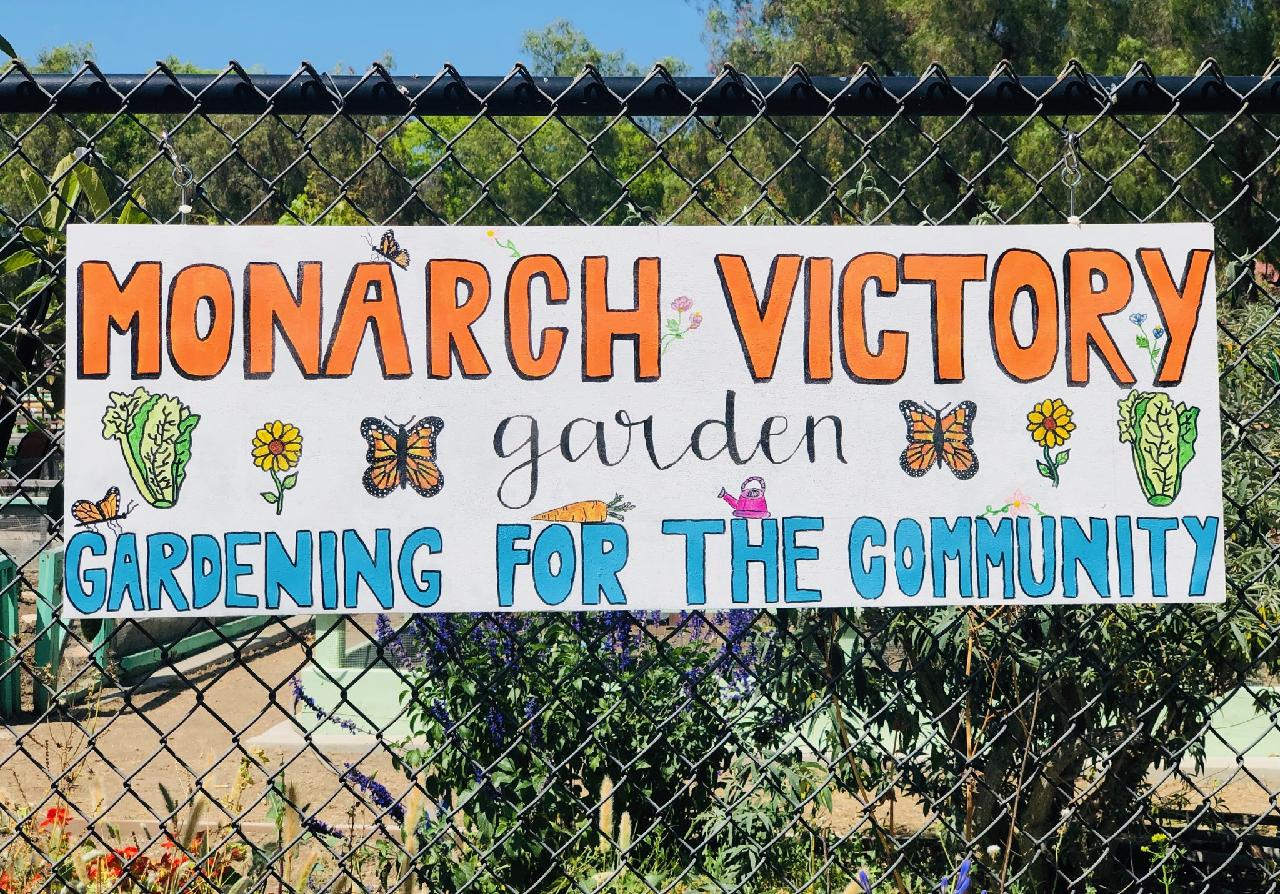 MONARCH VICTORY
garden
GARDENING FOR THE COMMUNITY